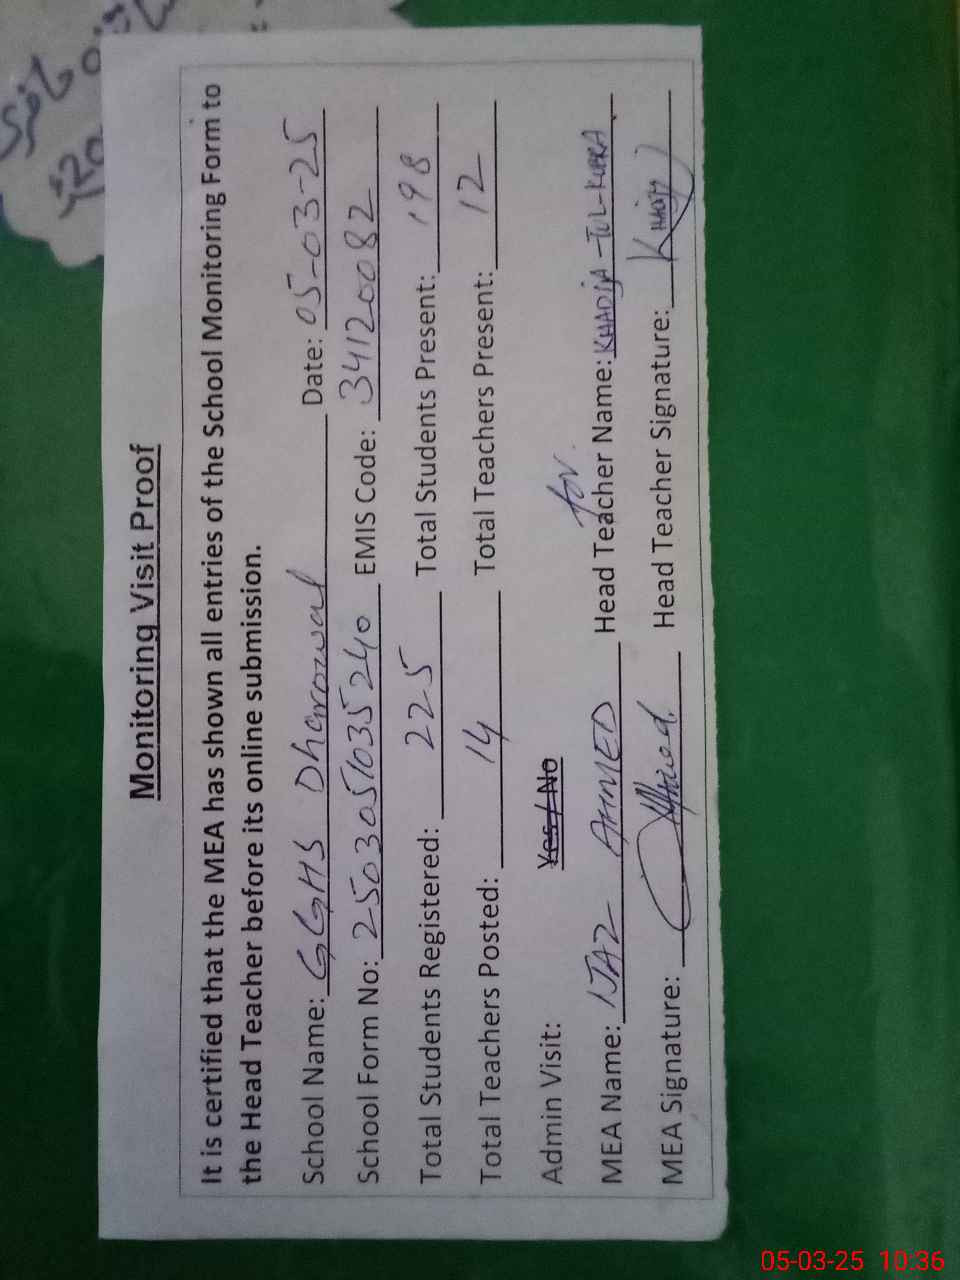 Monitoring Visit Proof
It is certified that the MEA has shown all entries of the School Monitoring Form to
the Head Teacher before its online submission.
School Name: GGHS Dharowal Date: 05-03-25
School Form No: 2503051035240 EMIS Code: 34120082
Total Students Registered: 225 Total Students Present: 198
Total Teachers Posted: 14 Total Teachers Present: 12
Admin Visit: Yes / No for
MEA Name: IJAZ AHMED Head Teacher Name: KHADIJA-TUL-KUBRA
MEA Signature: Head Teacher Signature:
05-03-25 10:36